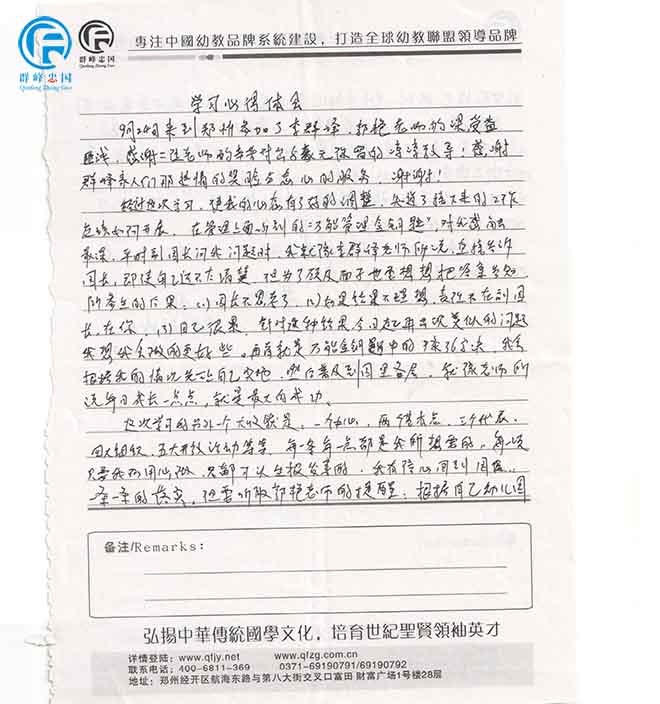 群峰忠国
Qunfeng Zhong Guo
群峰忠国
Qunfeng Zhong Guo
專注中國幼教品牌系統建設，打造全球幼教聯盟領導品牌
学习心得体会
9月24日来到郑州参加了李群峰，郭艳老师的课受益
匪浅，感谢二位老师的辛苦付出与毫无保留的谆谆教导；感谢
群峰亲人们那热情的笑脸与忠心的服务，谢谢！
经过这次学习，使我的心态有了好的调整，知道了接下来的工作
应该如何开展。在管理上面学到的“万能管理金钥匙”，对我感言
最深，平时到园长问我问题时，我就像李群峰老师所说，直接告诉
园长，即使自己还不太清楚，但为了顾及面子也要想想把答案告知
所产生的后果：(1)园长不思考了，(2)如是结果不理想，责任不在到园
长，在你，(3)自己很累。针对这种结果今日起再出次类似的问题
我想我会做的更好些。再者就是万能金钥匙中的3乘36字决，我会
根据我的情况先给自己实地，然后普及到园里各层，就像老师所
说每日成长一点点，就是最大的成功。
这次学习的另外一个大收获是，一个中心，两个基本点，三个代表，
四大组织，五大开放活动等等，每一条每一点都是我所想要的。每一次
只要我们用心做，只都可以上报发革的，我有信心回到园后
一条一条的落实，但要听取郭艳老师的提醒：根据自己幼儿园
备注/Remarks：
弘揚中華傳統國學文化，培育世紀聖賢領袖英才
详情登陆：www.qfjy.net www.qfzg.com.cn
联系电话：400-6811-369 0371-69190791/69190792
地址：郑州经开区航海东路与第八大街交叉口富田 财富广场1号楼28层